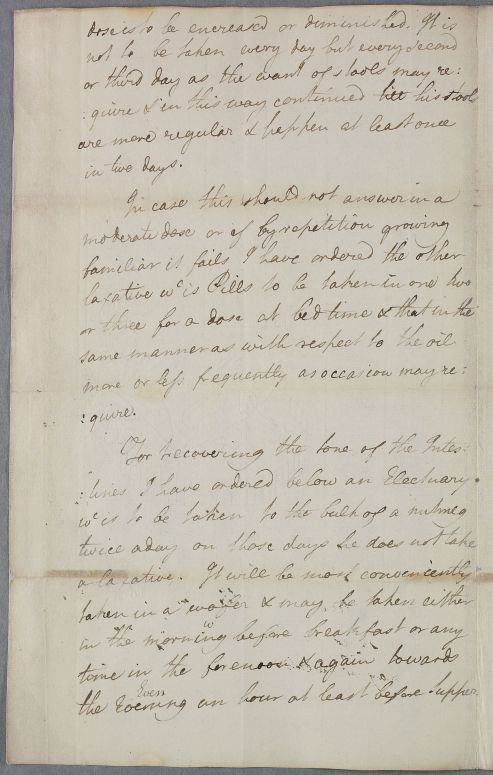 dose is to be encreased or diminished. It is
not to be taken every day but every second
or third day as the want of stools may re:
:quire & in this way continued till his stools
are more regular & happen at least once
in two days.
In case this should not answer in a
moderate dose or if by repetition growing
familiar it fails I have ordered the other
laxative wc is Pills to be taken in one two
or three for a dose at bed time & that in the
same manner as with respect to the oil
more or less frequently as occasion may re:
:quire.
For recovering the tone of the Intes:
:tines I have ordered below an Electuary
wc is to be taken to the bulk of a nutmeg
twice a day on those days he does not take
a laxative. It will be most conveniently
taken in a wafer & may be taken either
in the morning before breakfast or any
time in the forenoon & again towards
Even
the Evening an hour at least before Supper.